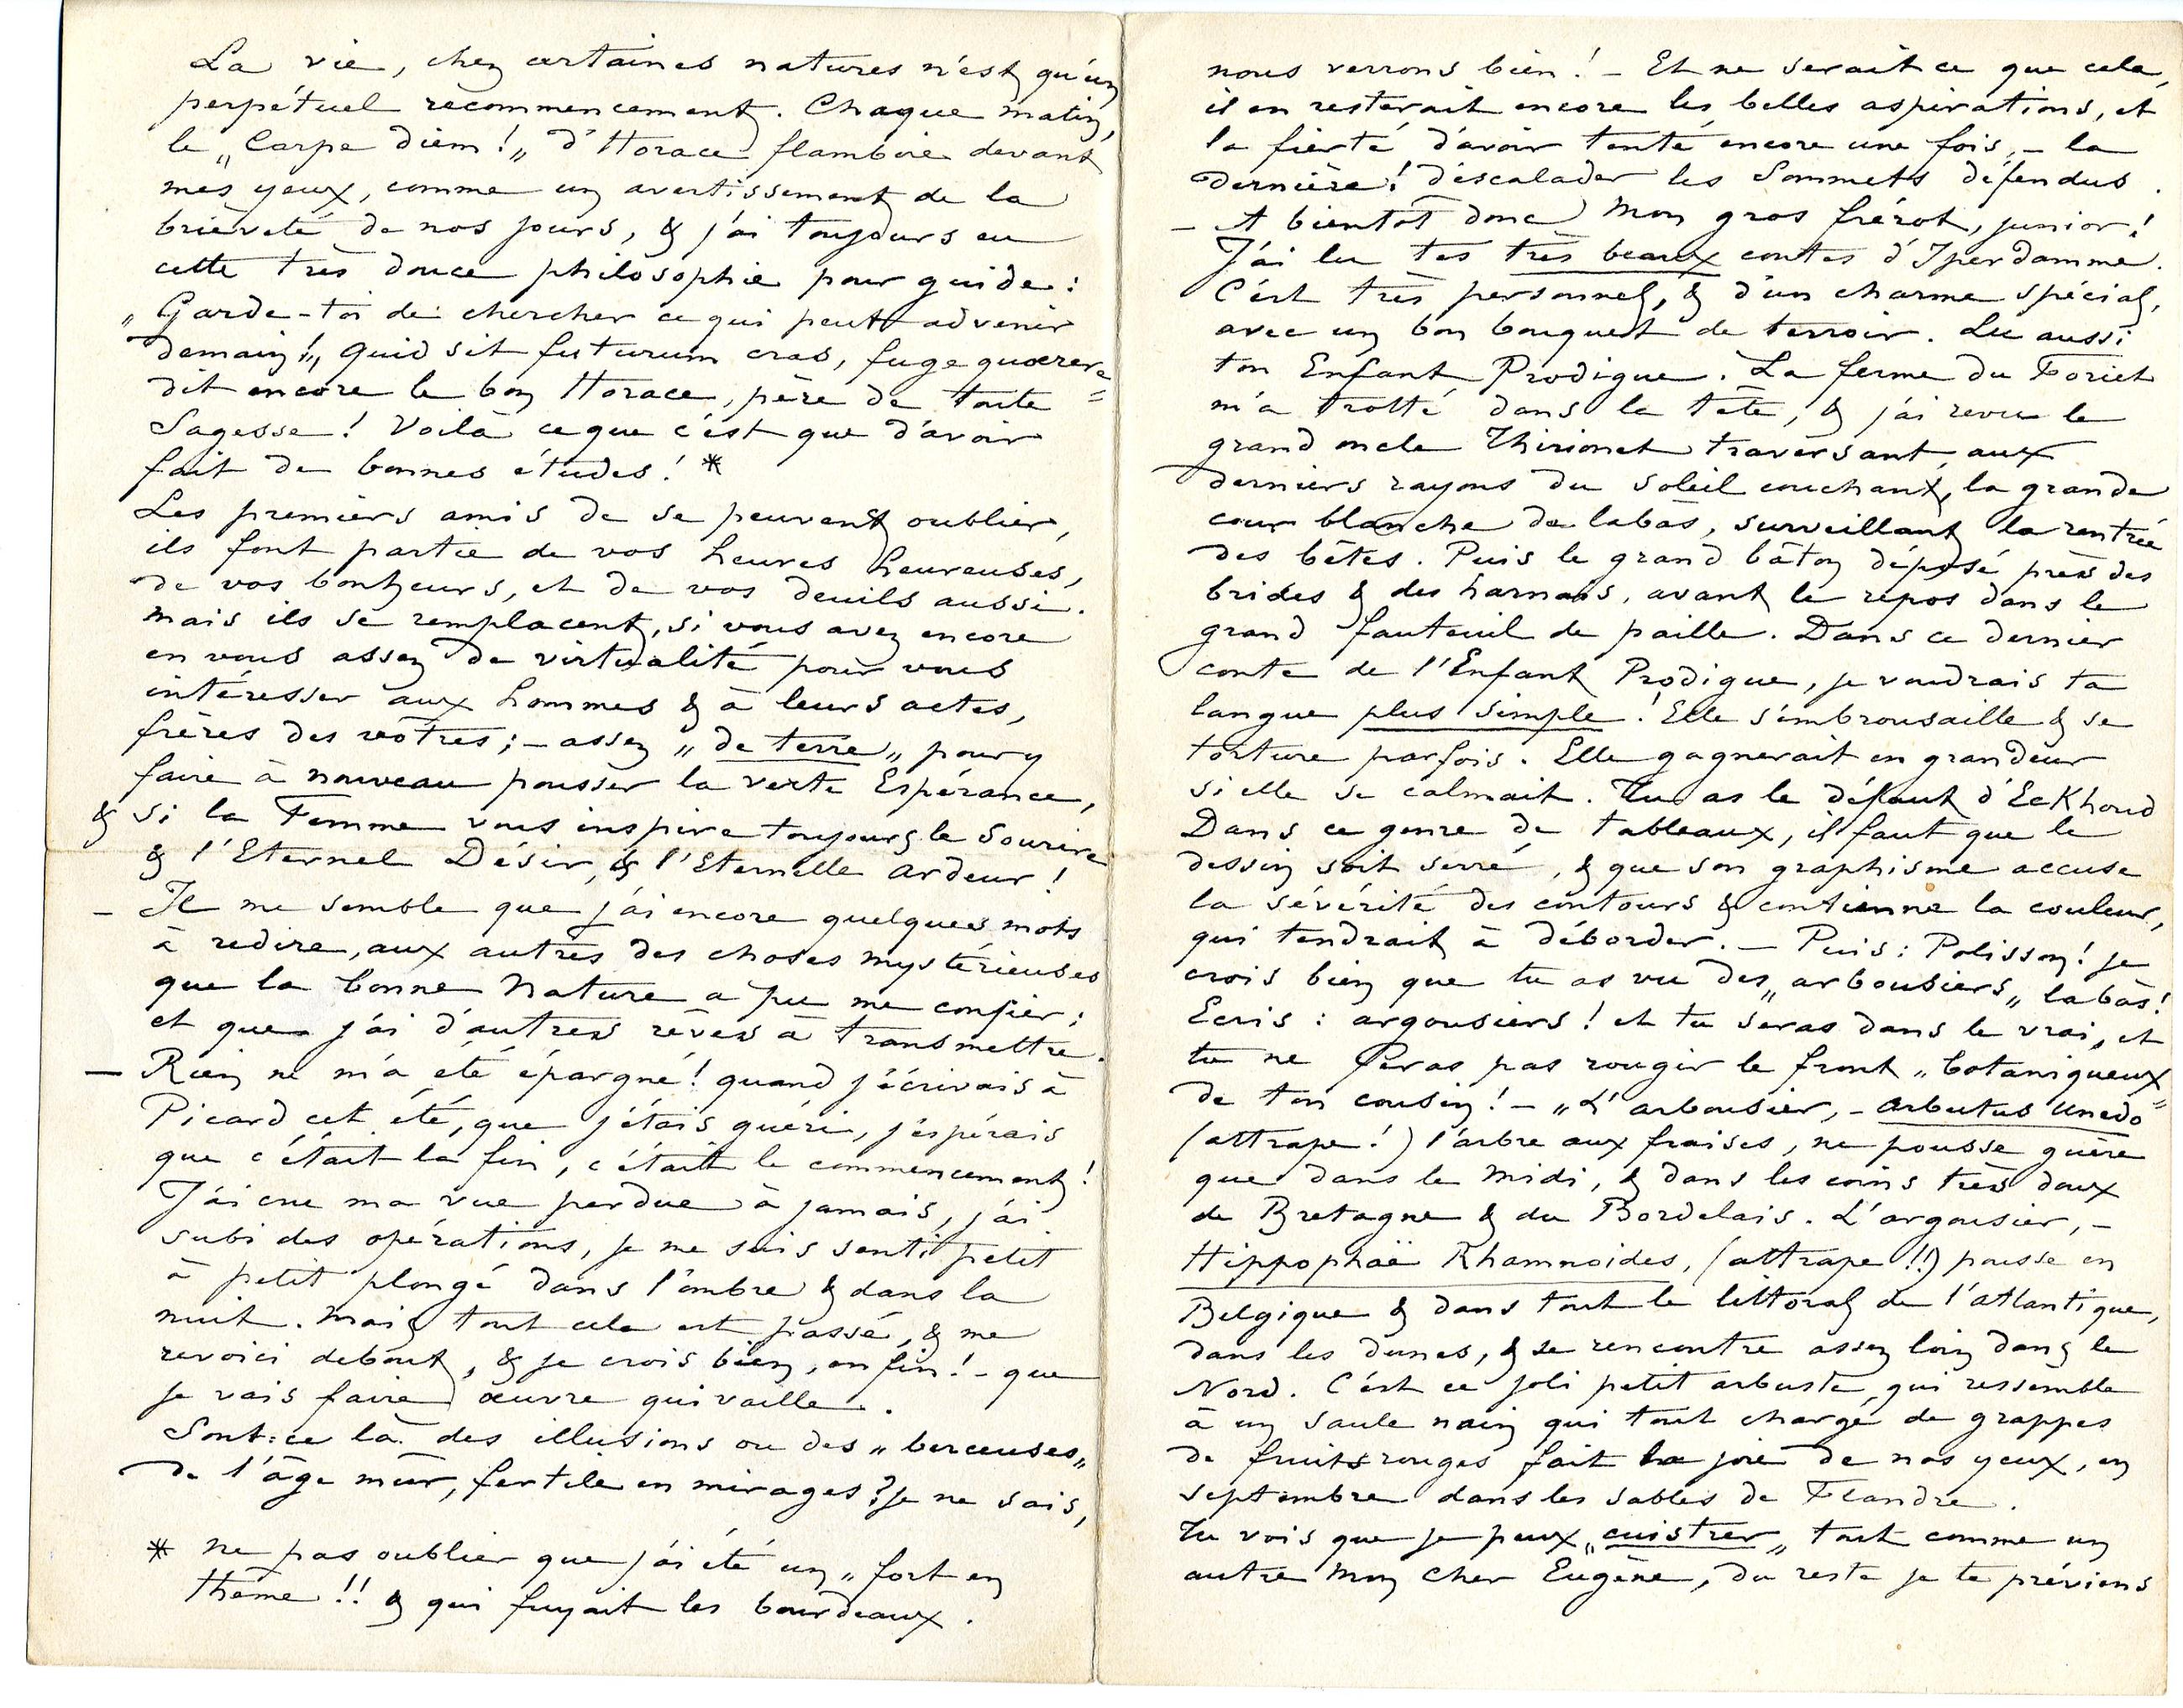 La vie, chez certaines natures n'est qu'un
perpétuel recommencement. Chaque matin,
le „Carpe diem!„ d'Horace flamboie devant
mes yeux, comme un avertissement de la
brièveté de nos jours, & j'ai toujours eu
cette très douce philosophie pour guide:
„Garde-toi de chercher ce qui peut advenir
demain!„ Quid sit futurum cras, fuge quærere
dit encore le bon Horace, père de toute
Sagesse! Voilà ce que c'est que d'avoir
fait de bonnes études! *
Les premiers amis de se peuvent oublier,
ils font partie de vos heures heureuses,
de vos bonheurs, et de vos deuils aussi.
mais ils se remplacent, si vous avez encore
en vous assez de virtualité pour vous
intéresser aux hommes & à leurs actes,
frères des vôtres; – assez „de terre„ pour y
faire à nouveau pousser la verte Espérance,
& si la Femme vous inspire toujours le Sourire
& l'Eternel Désir, & l'Eternelle ardeur!
– Il me semble que j'ai encore quelques mots
à redire, aux autres des choses mystérieuses
que la bonne Nature a pu me confier;
et que j'ai d'autres rêves à transmettre.
— Rien ne m'a été épargné! quand j'écrivais à
Picard cet été, que j'étais guéri, j'espérais
que c'était la fin, c'était le commencement!
J'ai cru ma vue perdue à jamais, j'ai
subi des opérations, je me suis senti petit
à petit plongé dans l'ombre & dans la
nuit. Mais tout cela est passé, & me
revoici debout, & je crois bien, enfin! – que
je vais faire œuvre qui vaille.
Sont-ce là des illusions ou des „berceuses„
de l'âge mûr, fertile en mirages? Je ne sais,
* ne pas oublier que j'ai été un „fort en
thême!! & qui fuyait les bourdeaux.
nous verrons bien! – Et ne serait ce que cela,
il en resterait encore les belles aspirations, et
la fierté d'avoir tenté encore une fois, – la
dernière! d'escalader les Sommets défendus.
– A bientôt donc mon gros frérot, junior!
J'ai lu tes très beaux contes d'Yperdamme.
C'est très personnel, & d'un charme spécial,
avec un bon bouquet de terroir. Lu aussi
ton Enfant Prodigue. La ferme du Foriet
m'a trotté dans la tête, & j'ai revu le
grand oncle Thirionet traversant, aux
derniers rayons du soleil couchant, la grande
cour blanche de labas, surveillant la rentrée
des bêtes. Puis le grand bâton déposé près des
brides & des harnais, avant le repos dans le
grand fauteuil de paille. Dans ce dernier
conte de l'Enfant Prodigue, je voudrais ta
langue plus simple! Elle s'embrousaille & se
torture parfois. Elle gagnerait en grandeur
si elle se calmait. Tu as le défaut d'Eckhoud
Dans ce genre de tableaux, il faut que le
dessin soit serré, & que son graphisme accuse
la sévérité des contours & contienne la couleur,
qui tendrait à déborder. – Puis: Polisson! je
crois bien que tu as vu des „arbousiers„ labàs!
Ecris: argousiers! et tu seras dans le vrai, et
tu ne feras pas rougir le front „botaniqueux„
de ton cousin! – „L'arbousier, – Arbutus Unedo„
(attrape!) l'arbre aux fraises, ne pousse guère
que dans le Midi, & dans les coins très doux
de Bretagne & du Bordelais. L'argousier, –
Hippophaë Rhamnoides, (attrape!!) pousse en
Belgique & dans tout le littoral de l'atlantique,
dans les dunes, & se rencontre assez loin dans le
Nord. C'est ce joli petit arbuste, qui ressemble
à un saule nain qui tout chargé de grappes
de fruits rouges fait la joie de nos yeux, en
septembre dans les sables de Flandre.
Tu vois que je peux „cuistrer„ tout comme un
autre Mon Cher Eugène, du reste je te préviens